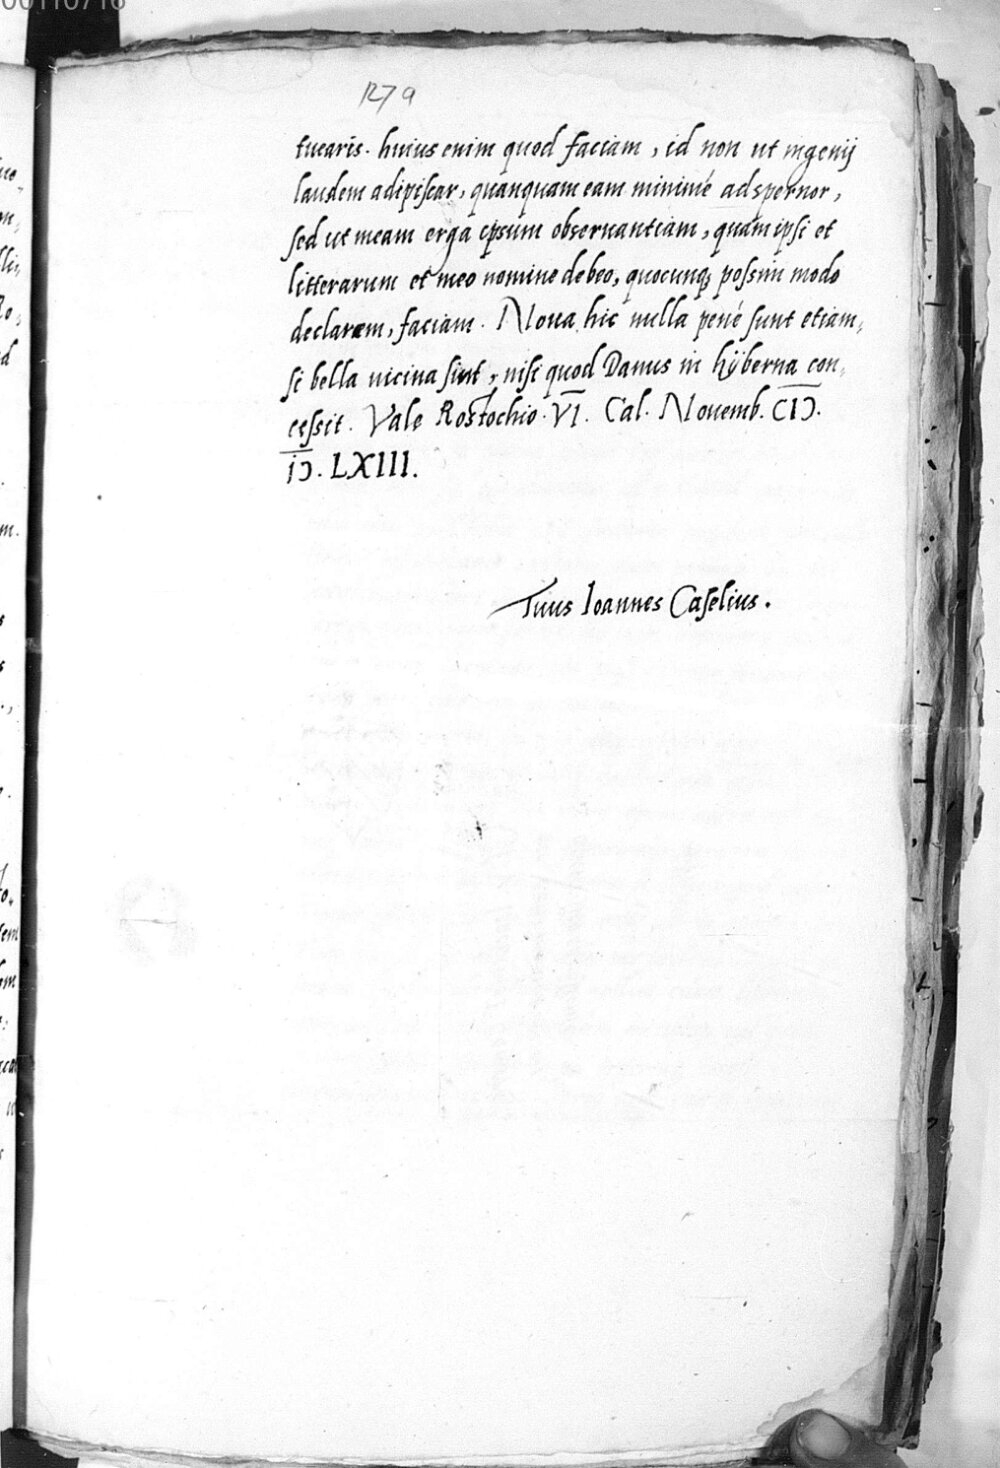 00110716
127a
tuearis. huius enim quod faciam, id non ut ingenij
laudem adipiscar, quanquam eam minimè adspernor,
sed ut meam erga ipsum obseruantiam, quam ipsi et
litterarum et meo nomine debeo, quocunq; possim modo
declarem, faciam. Noua hic nulla penè sunt etiam,
si bella uicina sint, nisi quod Danus in hÿberna con,
cessit. Vale Rostochio. VI. Cal. Nouemb. CIↃ.
IↃ. LXIII.
Tuus Ioannes Caselius.